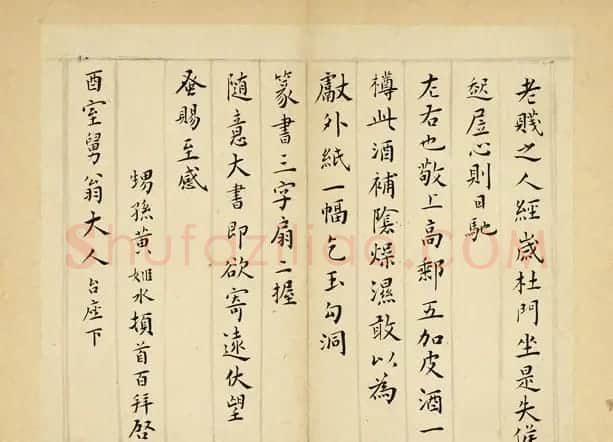 老賤之人經歲杜門坐是失候
起居心則日馳
左右也敬上高郵五加皮酒一
樽此酒補陰燥濕敢以為
獻外紙一幅乞玉勾洞
篆書三字扇二握
隨意大書即欲寄遠伏望
蚤賜至感
甥孫黃姬水頓首百拜啓
酉室舅翁大人台座下
Shufaziliao.COM